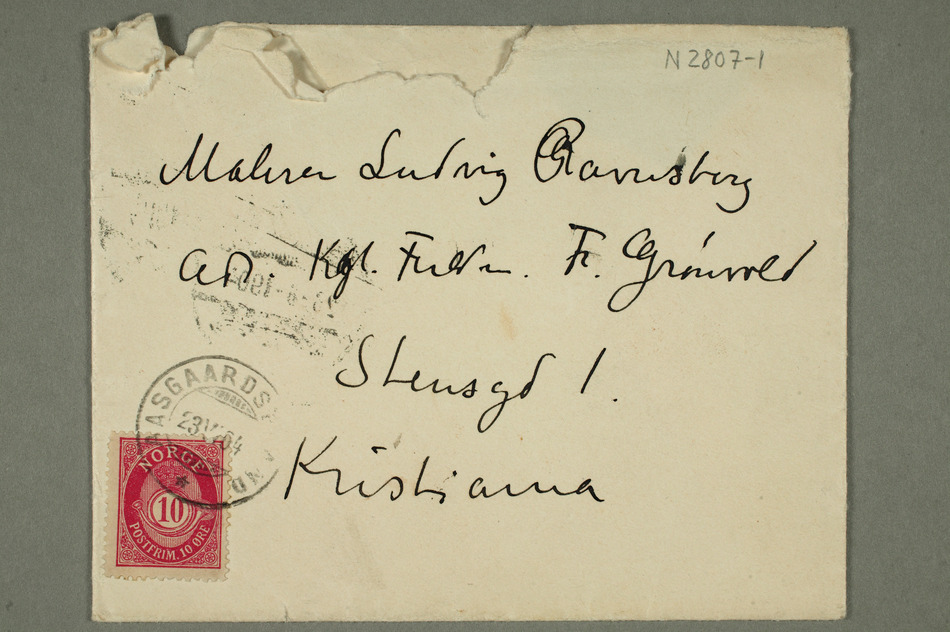 N 2807-1
Maleren Ludvig Ravensberg
adr. Kgl. Fuldm. Fr. Grønvold
Stensgd 1.
Kristiania
AASGAARDSTRAND
23 V 04
NORGE
10
POSTFRIM. 10 ØRE